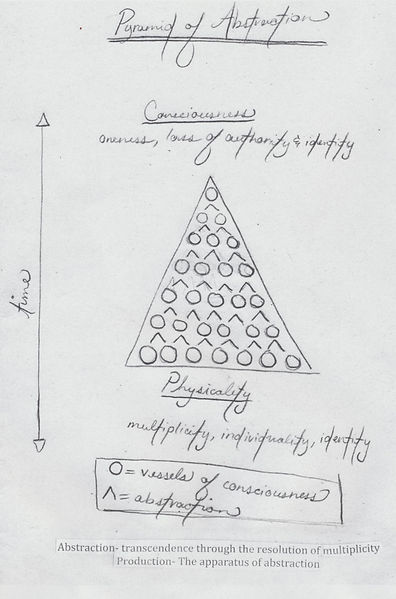 Pyramid of Abstraction
Consciousness
oneness, loss of authority & identity
time
Physicality
multiplicity, individuality, identity
O = vessels of consciousness
^ = abstraction
Abstraction- transcendence through the resolution of multiplicity
Production- The apparatus of abstraction